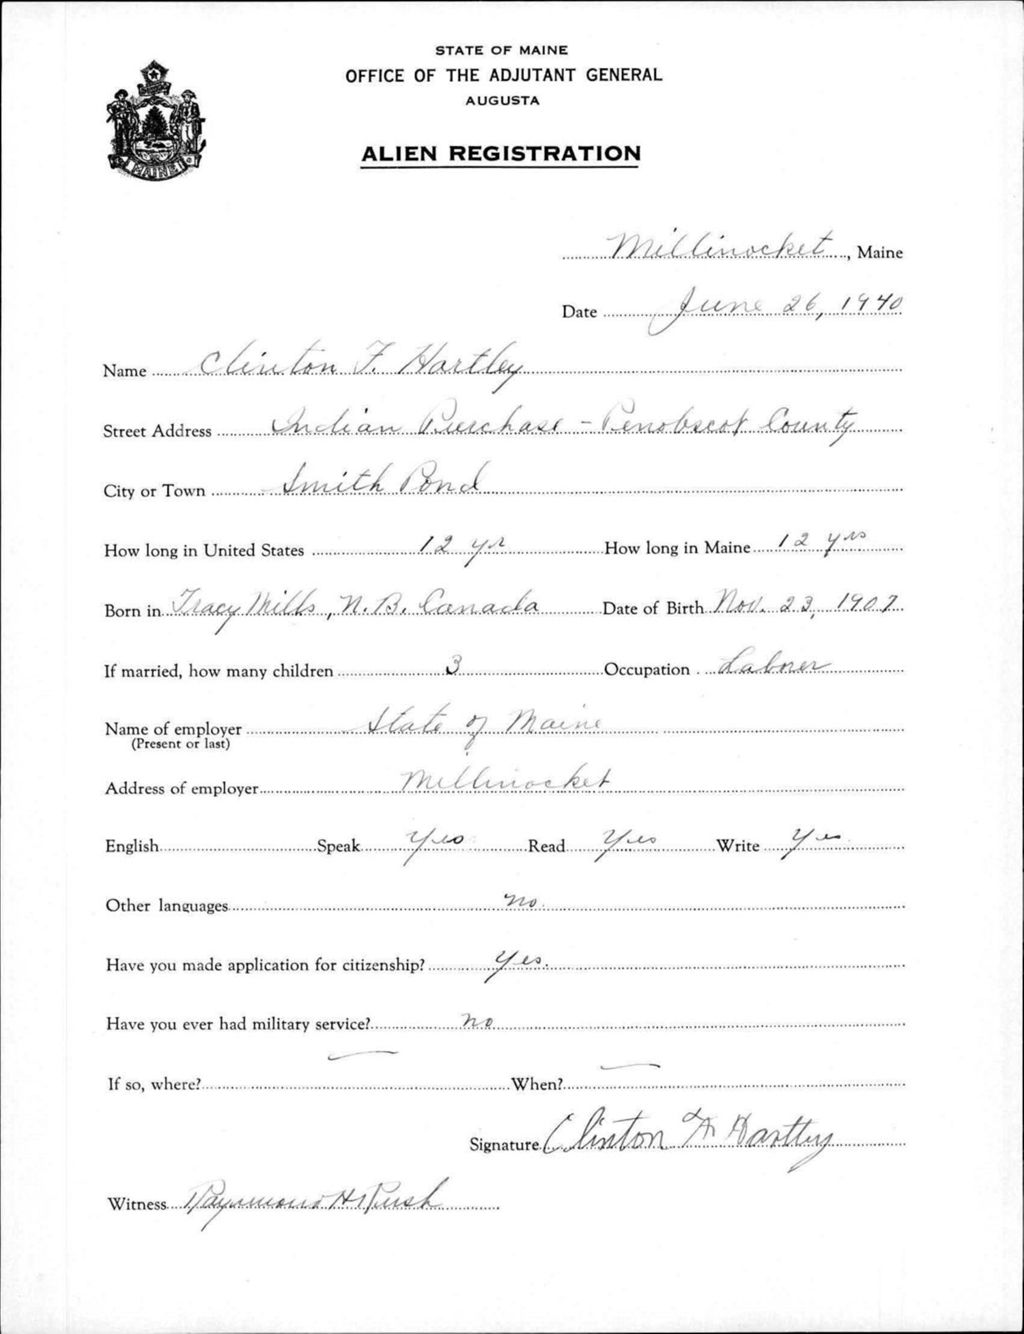 STATE OF MAINE
OFFICE OF THE ADJUTANT GENERAL
AUGUSTA
ALIEN REGISTRATION
MAINE
Millinocket, Maine
Date June 26, 1940
Name Clinton F. Hartley
Street Address Indian Purchase - Penobscot County
City or Town Smith Pond
How long in United States 12 yr How long in Maine 12 yrs
Born in Tracy Mills, N.B. Canada Date of Birth Nov. 23, 1907
If married, how many children 3 Occupation Laborer
Name of employer State of Maine
(Present or last)
Address of employer Millinocket
English Speak Yes Read Yes Write Yes
Other languages no
Have you made application for citizenship? Yes.
Have you ever had military service? no
If so, where? — When? —
Signature Clinton F Hartley
Witness Raymond H Rush